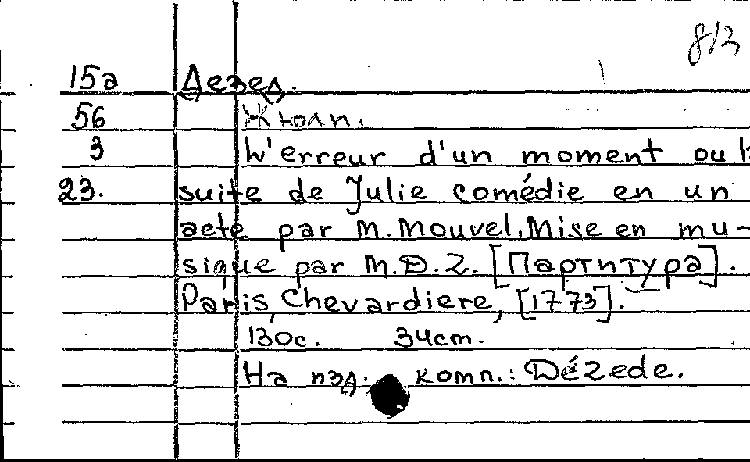 б/з
15а Дезед.
56 Жюли.
3 W'erreur d'un moment ou la
23. suite de Julie comédie en un
acte par M. Mouvel, Mise en mu-
sique par M.D.Z. [Партитура].
Paris, Chevardiere, [1773].
130с. 34cm.
На изд. комп.: Dézede.